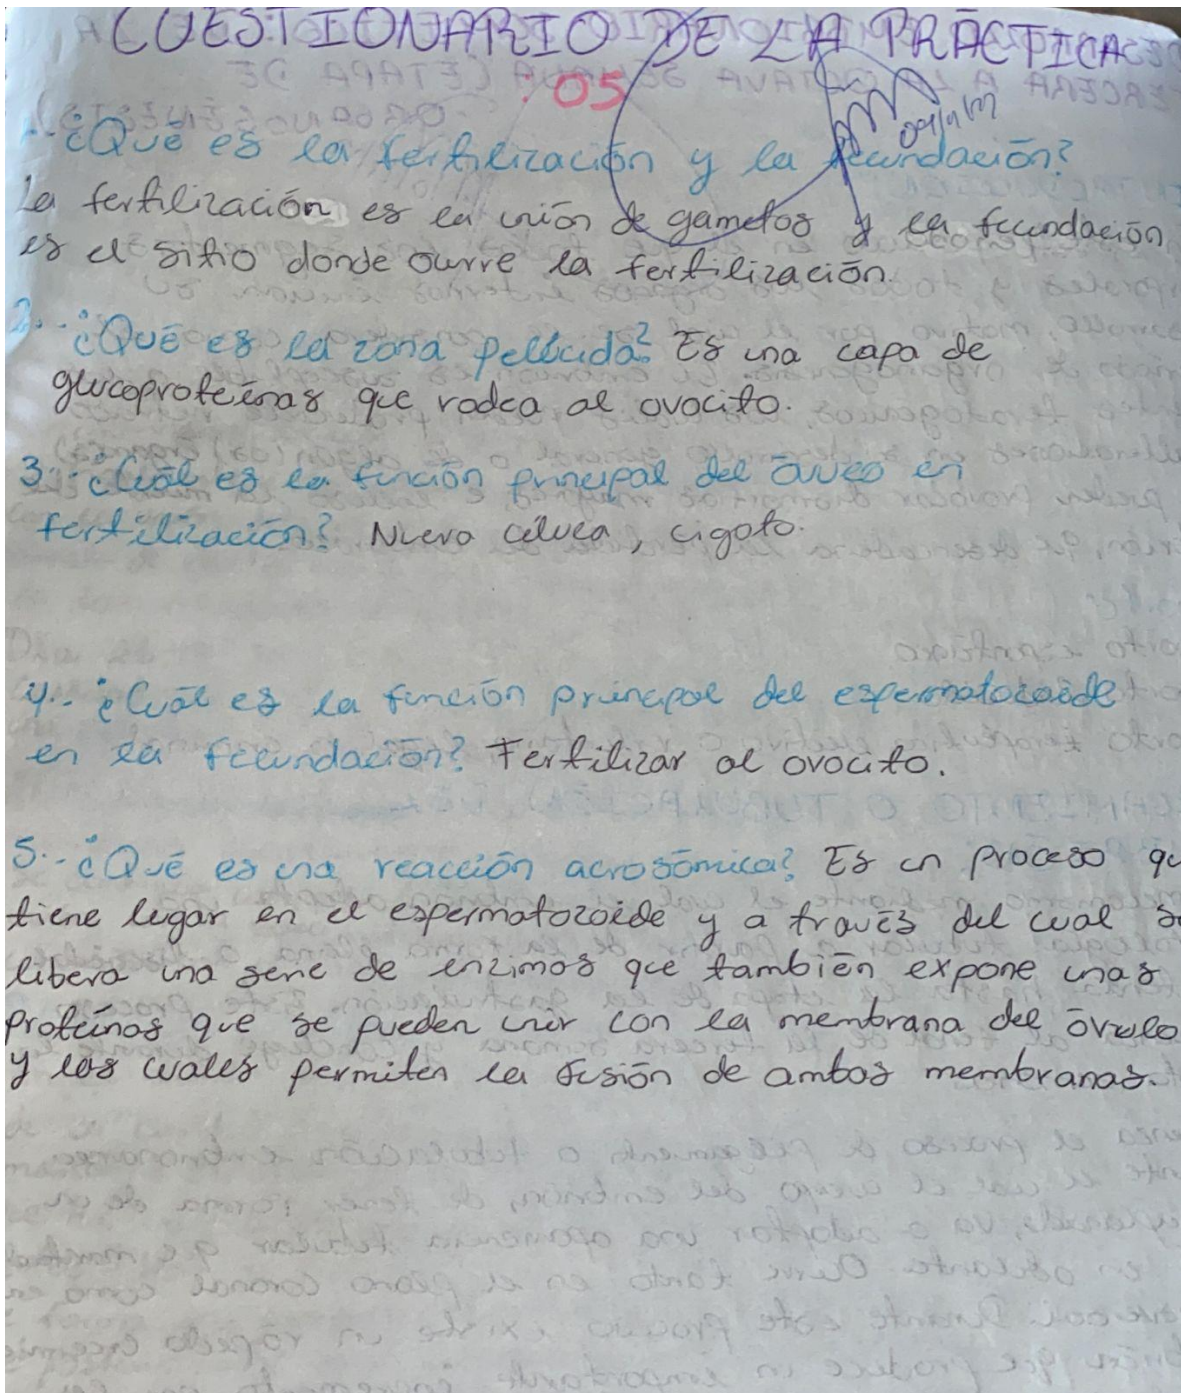 CUESTIONARIO DE LA PRÁCTICA
05
1.- ¿Qué es la fertilización y la fecundación?
La fertilización es la unión de gametos y la fecundación
es el sitio donde ourre la fertilización.
2.- ¿Qué es la zona pelúcida? Es una capa de
glucoproteínas que rodea al ovocito.
3.- ¿Cuál es la función principal del óvulo en
fertilización? Nueva célula, cigoto.
4.- ¿Cuál es la función principal del espermatozoide
en la fecundación? Fertilizar al ovocito.
5.- ¿Qué es una reacción acrosómica? Es un proceso qu
tiene lugar en el espermatozoide y a través del cual s
libera una serie de enzimas que también expone unas
proteínas que se pueden unir con la membrana del óvulo
y los cuales permiten la fusión de ambas membranas.